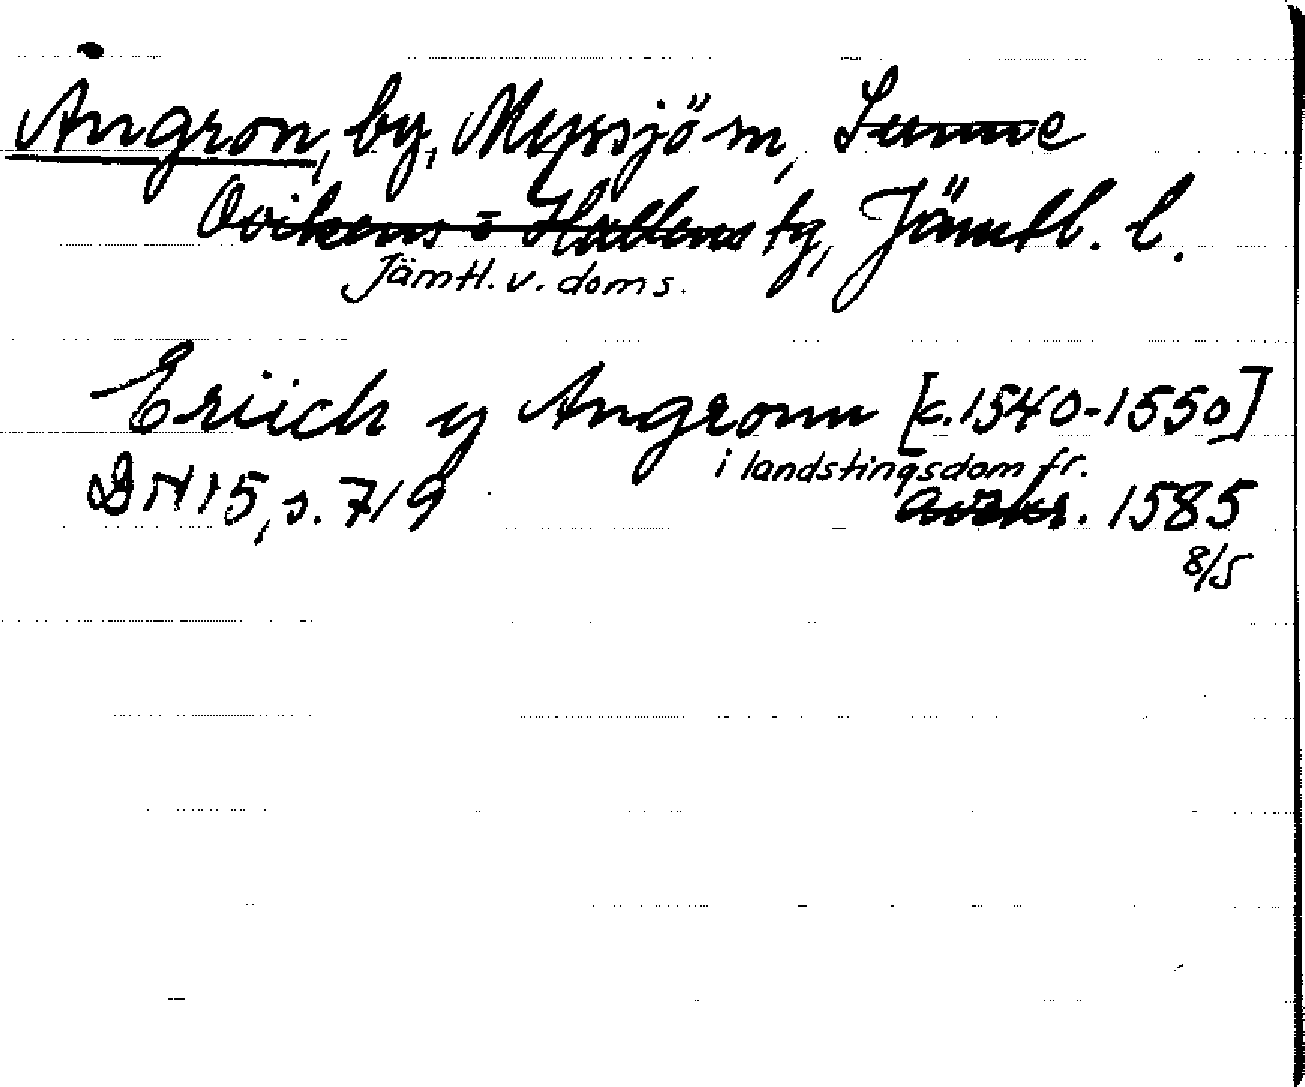 Ångron, by, Myssjö sn, Sunne
Ovikens o Hallens tg, Jämtl. l.
Jämtl. v. doms.
Eriich y Angronn [c. 1540-1550]
i landstingsdom fr.
DN 15, s. 719 avskr. 1585
8/5